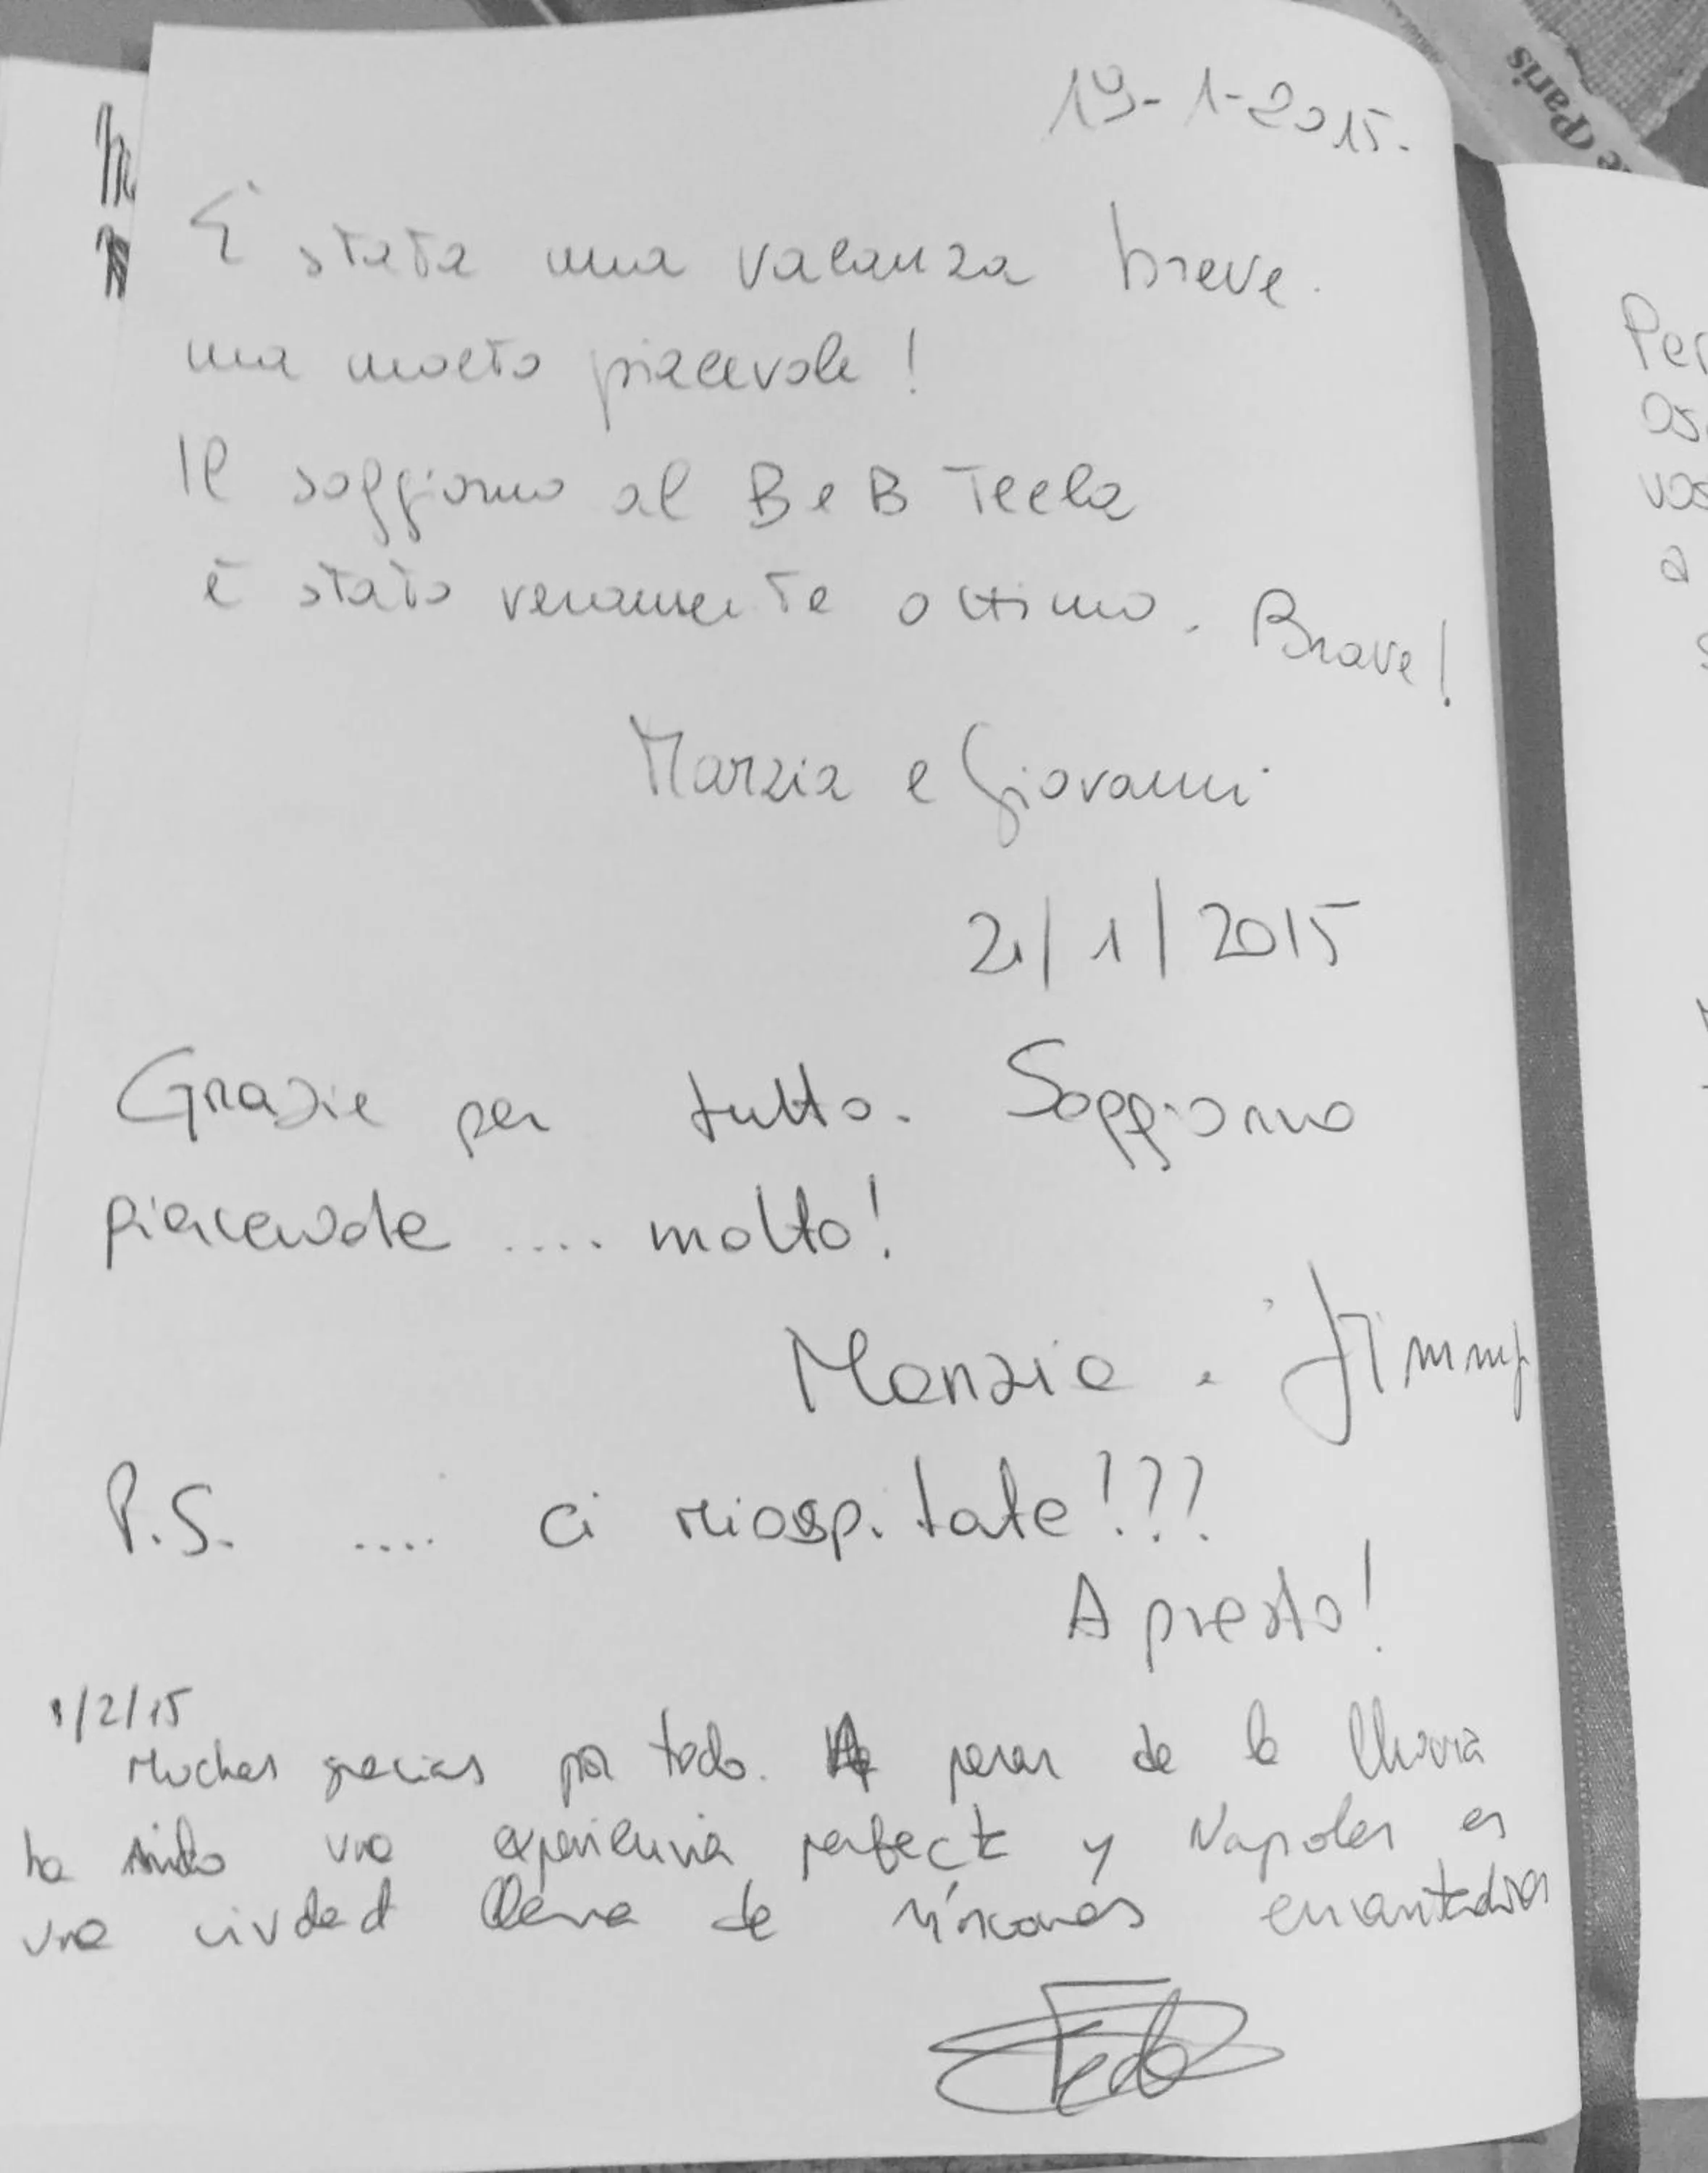 19-1-2015.
È stata una vacanza breve.
ma molto piacevole!
Il soggiorno al B e B Tecla
è stato veramente ottimo. Brave!
Marzia e Giovanni
21/1/2015
Grazie per tutto. Soggiorno
piacevole .... molto!
Marzia e Jimmy
P.S. .... ci riospitate!???
A presto!
1/2/15
Muchas gracias por todo. A pesar de la lluvia
ha sido una experiencia perfecta y Napoles es
una ciudad llena de rincones encantadores
e (Paris
Per
Os
vos
a